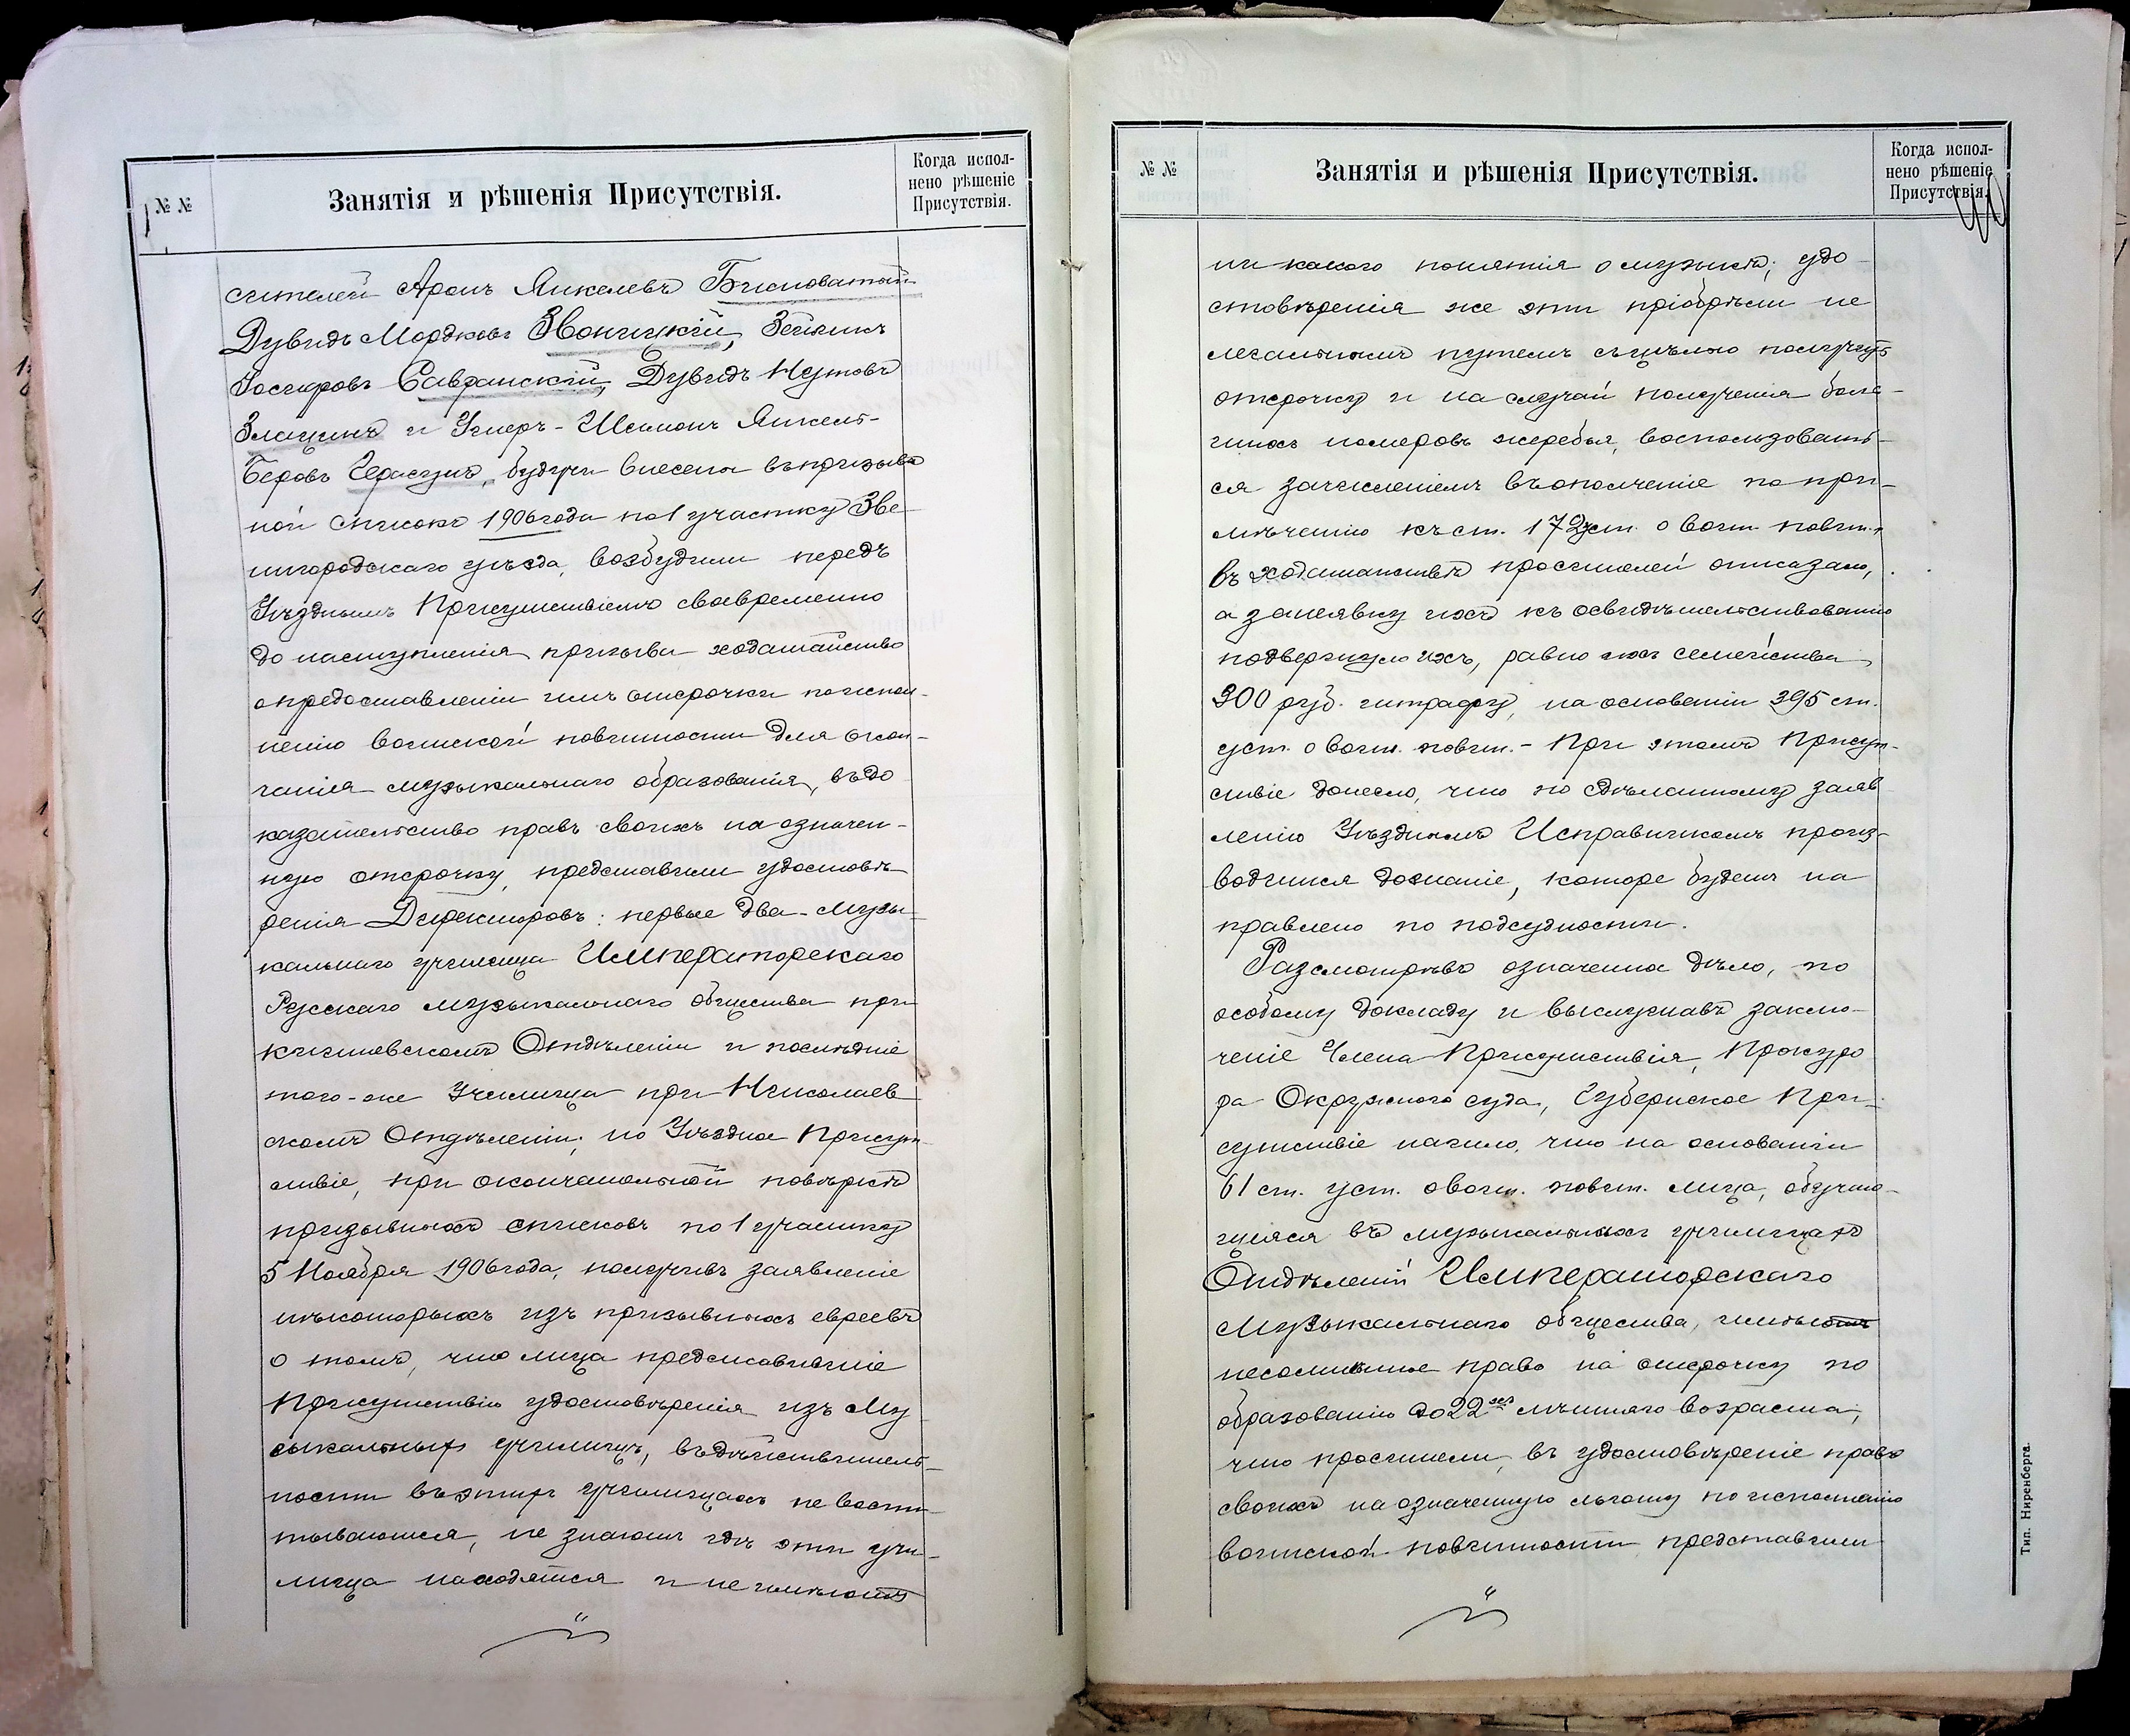 № №
Занятія и рѣшенія Присутствія.
Когда испол-
нено рѣшеніе
Присутствія.
сителей Аронъ Янкелевъ
Дувидъ Мордковъ Звоницкій, Зейликъ
Іосифовъ Савранскій, Дувидъ Нутовъ
Злацинъ и Умеръ-Шлимонъ Янкель-
Беровъ будучи внесены въ призыв
ной списокъ 1906 года по 1 участку Зве
нигородскаго уѣзда, возбудили передъ
Уѣзднымъ Присутствіемъ своевременно
до наступленія призыва ходатайство
о предоставленіи имъ отсрочки по испол-
ненію воинской повинности для окон-
чанія музыкальнаго образованія, въ до
казательство правъ своихъ на означен-
ную отсрочку, представили удостовѣ-
ренія Директоровъ: первые два - Музы-
кальнаго училища Императорскаго
Русскаго музыкальнаго общества при
Кишиневскомъ Отдѣленіи и послѣдніе
того-же Училища при Николаев
скомъ Отдѣленіи; но Уѣздное Присут-
ствіе, при окончательной повѣркѣ
призывныхъ списковъ по 1 участку
5 Ноября 1906 года, получивъ заявленіе
нѣкоторыхъ изъ призывныхъ евреевъ
о томъ, что лица представившіе
Присутствію удостовѣренія изъ Му
зыкальныхъ училищъ, въ дѣйствитель-
ности въ этихъ училищахъ не воспи-
тываются, не знаютъ гдѣ эти учи-
лища находятся и не имѣютъ
№ №
Занятія и рѣшенія Присутствія.
Когда испол-
нено рѣшеніе
Присутствія.
ни какого понятія о музыкѣ; удо-
стовѣренія же эти пріобрѣли не
легальнымъ путемъ съ цѣлью получить
отсрочку и на случай полученія боль-
шихъ номеровъ жеребья, воспользовать-
ся зачисленіемъ въ ополченіе по при-
мѣчанію къ ст. 172 уст. о воин. повин.,
въ ходатайствѣ просителей отказало,
а за неявку ихъ къ освидѣтельствованію
подвергнуло ихъ, равно ихъ семейства
300 руб. штрафу, на основаніи 395 ст.
уст. о воин. повин. - При этомъ Присут-
ствіе донесло, что по сдѣланному заяв
ленію Уѣзднымъ Исправникомъ произ-
водится дознаніе, которе будетъ на
правлено по подсудности.
Разсмотрѣвъ означенное дѣло, по
особому докладу и выслушавъ заклю-
ченіе Члена Присутствія, Прокуро
ра Окружного суда, Губернское При-
сутствіе нашло, что на основаніи
61 ст. уст. о воин. повин. лица, обучаю-
щіяся въ музыкальныхъ училищахъ
Отдѣленій Императорскаго
Музыкальнаго общества, имѣютъ
несомнѣнное право на отсрочку по
образованію до 22хъ лѣтняго возраста,
что просители, въ удостовѣреніе правъ
своихъ на означенную льготу по исполненію
воинской повинности представили
Тип. Ниренберга.